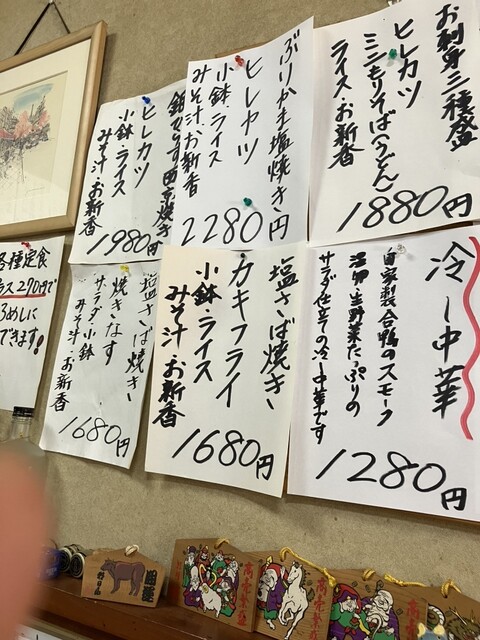 お刺身三種盛
ヒレカツ
ミニもりそば(うどん)
ライス・お新香
1880円
ぶりかま塩焼き
ヒレカツ
小鉢・ライス
みそ汁 お新香
2280円
銀ひらす西京焼き
ヒレカツ
小鉢・ライス
みそ汁 お新香
1980円
冷し中華
自家製合鴨のスモーク
生野菜たっぷりの
サラダ仕立ての冷し中華です
1280円
塩さば焼き
カキフライ
小鉢・ライス
みそ汁 お新香
1680円
塩さば焼き
焼きなす
サラダ・小鉢
みそ汁・お新香
1680円
各種定食
プラス270円で
できます!
商売繁